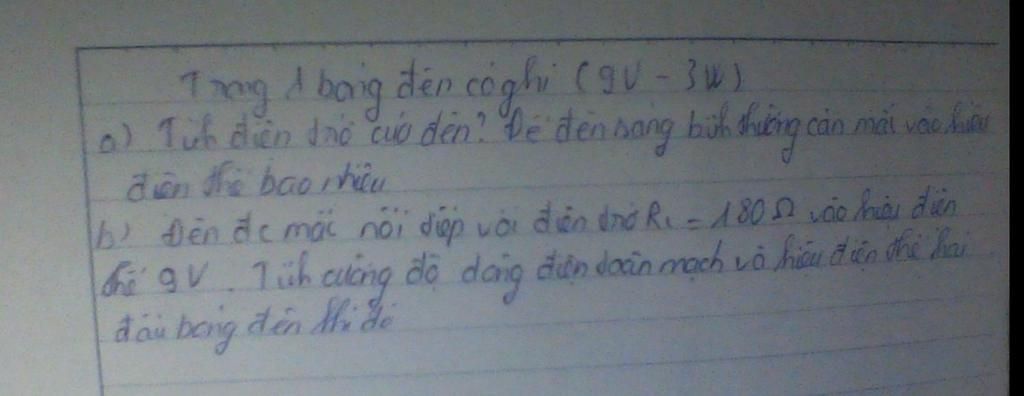 Trong 1 bóng đèn có ghi (9V - 3W)
a) Tính điện trở của đèn? Để đèn sáng bình thường cần mắc vào hiệu
điện thế bao nhiêu
b) Đèn đc mắc nối tiếp với điện trở R₁ = 180Ω vào hiệu điện
thế 9V. Tính cường độ dòng điện đoàn mạch và hiệu điện thế hai
đầu bóng đèn khi đó